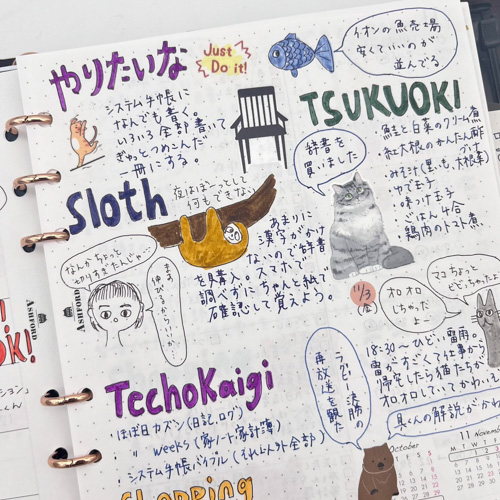 やりたいな
Just
Do it!
イオンの魚売場
安くていいのが
並んでる
システム手帳に
なんでも書く。
いろいろ全部書いて
ぎゅっとつめこんだ
一冊にする。
TSUKUOKI
鮭と白菜のクリーム煮
紅大根のかんたん酢
・みそ汁(黒いも、大根葉)
・ゆで玉子
・味つけ玉子
・ごはん4合
鶏肉のトマト煮
辞書を
買いました
Sloth
夜はぼーっとして
何もできない
あまりに
漢字がかけ
ないので辞書
を購入。スマホで
調べずにちゃんと紙で
確認して覚えよう。
なんかちょっと
また
伸びるからいいか
ASHFORD
ASHFORD
11/3
(金)
オロオロ
しちゃった
よ
ママちょっと
どこちゃったよ
18:30〜ひどい雷雨。
雷がすごくて仕事から
帰宅したら猫たちが
オロオロしていてかわいい
ラグビー決勝の
再放送を観た
TechoKaigi
・ほぼ日カズン(日記、ログ)
〃 weeks(家ノート家計簿)
・システム手帳バイブル(それ以外全部)
Shopping
October
11 November